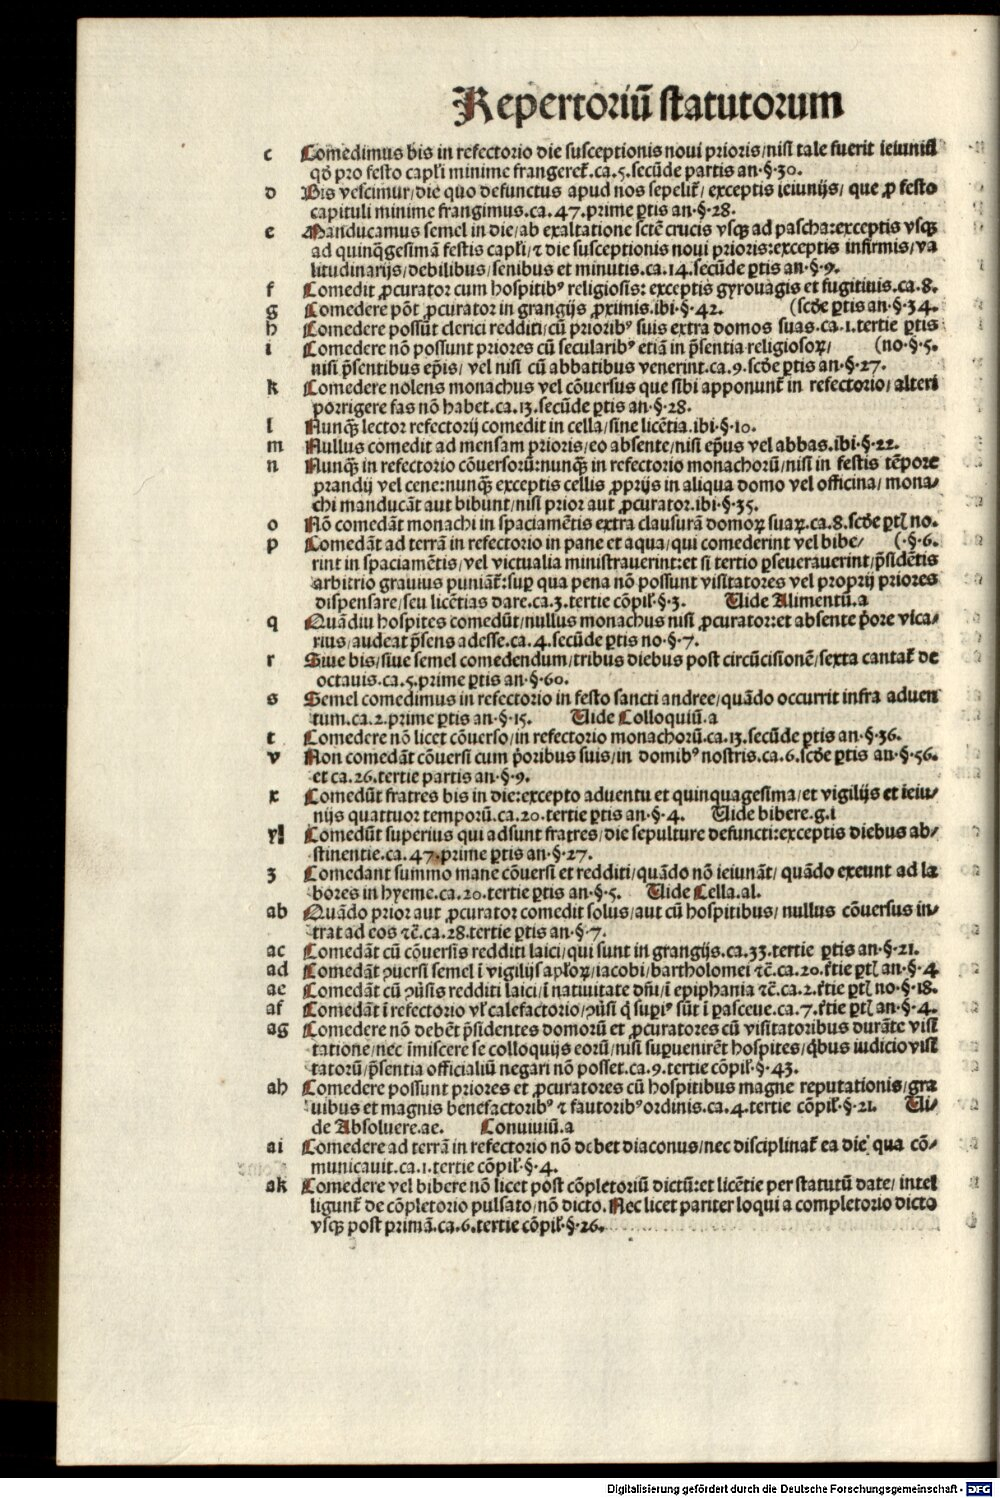 Repertoriū statutorum
c Comedimus bis in refectorio die susceptionis noui prioris/nisi tale fuerit ieiuniū
qd̄ pro festo capl̄i minime frangeret̄.ca.5.secūde partis an.§.30.
d Bis vescimur/die quo defunctus apud nos sepelit̄/exceptis ieiunijs/que ꝓ festo
capituli minime frangimus.ca.47.prime ꝑtis an.§.28.
e Manducamus semel in die/ab exaltatione sctē crucis vsqꝫ ad pascha:exceptis vsqꝫ
ad quinq̄gesimā festis capl̄i/⁊ die susceptionis noui prioris:exceptis infirmis/va
litudinarijs/debilibus/senibus et minutis.ca.14.secūde ꝑtis an.§.9.
f Comedit ꝓcurator cum hospitibꝰ religiosis: exceptis gyrouagis et fugitiuis.ca.8.
g Comedere pōt ꝓcurator in grangijs ꝓximis.ibi.§.42. (scd̄e ꝑtis an.§.34.
h Comedere possūt clerici redditi/cū prioribꝰ suis extra domos suas.ca.1.tertie ꝑtis
i Comedere nō possunt priores cū secularibꝰ etiā in p̄sentia religiosoꝝ/ (no.§.5.
nisi p̄sentibus ep̄is/vel nisi cū abbatibus venerint.ca.9.scd̄e ꝑtis an.§.27.
k Comedere nolens monachus vel cōuersus que sibi apponunt̄ in refectorio/alteri
porrigere fas nō habet.ca.13.secūde ꝑtis an.§.28.
l Nunqꝫ lector refectorij comedit in cella/sine licētia.ibi.§.10.
m Nullus comedit ad mensam prioris/eo absente/nisi ep̄us vel abbas.ibi.§.22.
n Nunqꝫ in refectorio cōuersorū:nunqꝫ in refectorio monachorū/nisi in festis tēpore
prandij vel cene:nunqꝫ exceptis cellis ꝓprijs in aliqua domo vel officina/mona/
chi manducāt aut bibunt/nisi prior aut ꝓcurator.ibi.§.35.
o Nō comedāt monachi in spaciamētis extra clausurā domoꝝ suaꝝ.ca.8.scd̄e ꝑtꝭ no.
p Comedāt ad terrā in refectorio in pane et aqua/qui comederint vel bibe/ (.§.6.
rint in spaciamētis/vel victualia ministrauerint:et si tertio ꝑseuerauerint/p̄sidētis
arbitrio grauius puniāt̄:suꝑ qua pena nō possunt visitatores vel proprij priores
dispensare/seu licētias dare.ca.3.tertie cōpil̄.§.3. Vide Alimentū.a
q Quādiu hospites comedūt/nullus monachus nisi ꝓcurator:et absente p̄ore vica/
rius/audeat p̄sens adesse.ca.4.secūde ꝑtis no.§.7.
r Siue bis/siue semel comedendum/tribus diebus post circūcisionē/sexta cantat̄ de
octauis.ca.5.prime ꝑtis an.§.60.
s Semel comedimus in refectorio in festo sancti andree/quādo occurrit infra aduen
tum.ca.2.prime ꝑtis an.§.15. Vide Colloquiū.a
t Comedere nō licet cōuerso/in refectorio monachorū.ca.13.secūde ꝑtis an.§.36.
v Non comedāt cōuersi cum p̄oribus suis/in domibꝰ nostris.ca.6.scd̄e ꝑtis an.§.56.
et ca.26.tertie partis an.§.9.
x Comedūt fratres bis in die:excepto aduentu et quinquagesima/et vigilijs et ieiu/
nijs quattuor temporū.ca.20.tertie ꝑtis an.§.4. Vide bibere.g.i
y Comedūt superius qui adsunt fratres/die sepulture defuncti:exceptis diebus ab/
stinentie.ca.47.prime ꝑtis an.§.27.
z Comedant summo mane cōuersi et redditi/quādo nō ieiunāt/quādo exeunt ad la
bores in hyeme.ca.20.tertie ꝑtis an.§.5. Vide Cella.al.
ab Quādo prior aut ꝓcurator comedit solus/aut cū hospitibus/nullus cōuersus in/
trat ad eos ⁊c̄.ca.28.tertie ꝑtis an.§.7.
ac Comedāt cū cōuersis redditi laici/qui sunt in grangijs.ca.33.tertie ꝑtis an.§.21.
ad Comedāt ꝯuersi semel ī vigilijs apl̄oꝝ/iacobi/bartholomei ⁊c̄.ca.20.t̄tie ꝑtꝭ an.§.4
ae Comedāt cū ꝯūsis redditi laici/ī natiuitate dn̄i/ī epiphania ⁊c̄.ca.2.t̄tie ꝑtꝭ no.§.18.
af Comedāt ī refectorio vl̄ calefactorio/ꝯūsi q̄ suꝑiꝰ sūt ī pasceue.ca.7.t̄tie ꝑtꝭ an.§.4.
ag Comedere nō debēt p̄sidentes domorū et ꝓcuratores cū visitatoribus durāte visi
tatione/nec īmiscere se colloquijs eorū/nisi suꝑuenirēt hospites/q̄bus iudicio visi
tatorū/p̄sentia officialiū negari nō posset.ca.9.tertie cōpil̄.§.43.
ah Comedere possunt priores et ꝓcuratores cū hospitibus magne reputationis/gra
uibus et magnis benefactoribꝰ ⁊ fautoribꝰ ordinis.ca.4.tertie cōpil̄.§.21. Vi/
de Absoluere.ae. Conuiuiū.a
ai Comedere ad terrā in refectorio nō debet diaconus/nec disciplinat̄ ea die qua cō/
municauit.ca.1.tertie cōpil̄.§.4.
ak Comedere vel bibere nō licet post cōpletoriū dictū:et licētie per statutū date/intel
ligunt̄ de cōpletorio pulsato/nō dicto.Nec licet pariter loqui a completorio dicto
vsqꝫ post primā.ca.6.tertie cōpil̄.§.26.
Digitalisierung gefördert durch die Deutsche Forschungsgemeinschaft - DFG